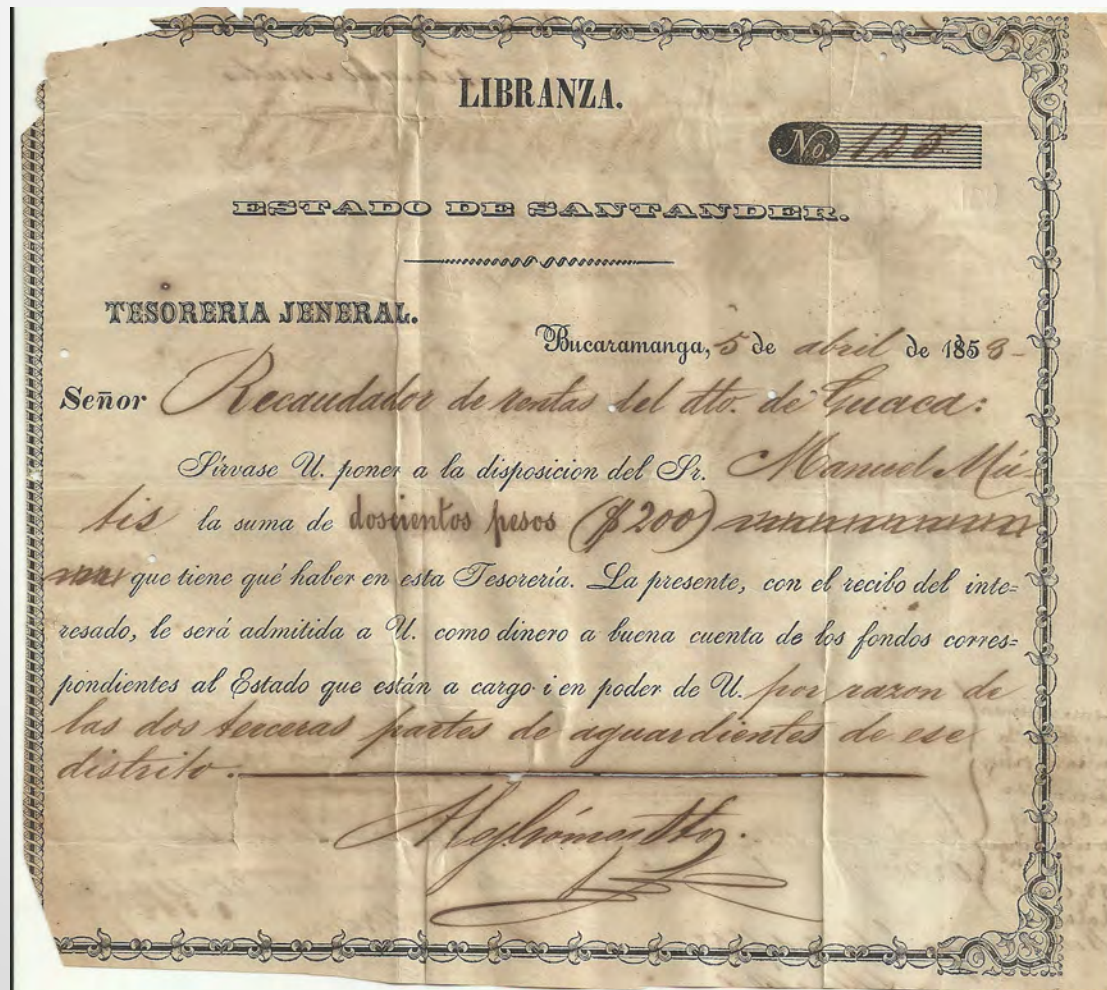 LIBRANZA.
No. 125
ESTADO DE SANTANDER.
TESORERIA JENERAL.
Bucaramanga, 5 de abril de 1858-
Señor Recaudador de rentas del dto. de Guaca:
Sírvase U. poner a la disposicion del Sr. Manuel Mú-
tis la suma de doscientos pesos ($200)
que tiene qué haber en esta Tesorería. La presente, con el recibo del inte=
resado, le será admitida a U. como dinero a buena cuenta de los fondos corres=
pondientes al Estado que están a cargo i en poder de U. por razon de
las dos terceras partes de aguardientes de ese
distrito.